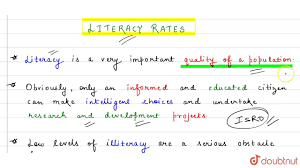 LITERACY RATES
* Literacy is a very important quality of a population.
* Obviously, only an informed and educated citizen
can make intelligent choices and undertake
research and development projects. ISRO
* Low levels of illiteracy are a serious obstacle
doubtnut